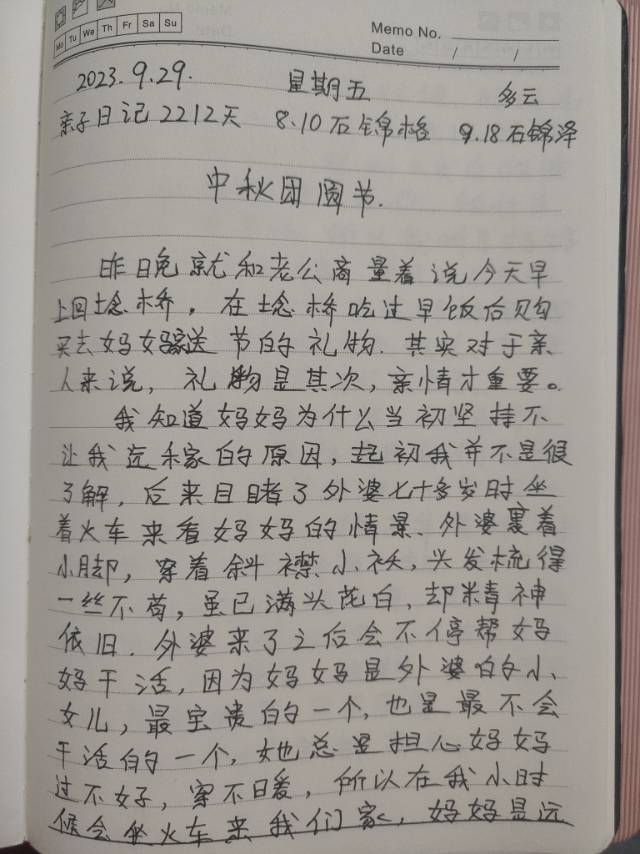 Mo Tu We Th Fr Sa Su
Memo No.
Date / /
2023.9.29. 星期五 多云
亲子日记2212天 8.10石锦格 9.18石锦泽
中秋团圆节.
昨日晚就和老公商量着说今天早
上回埝桥，在埝桥吃过早饭后购
买去妈妈家送节的礼物.其实对于亲
人来说，礼物是其次，亲情才重要。
我知道妈妈为什么当初坚持不
让我远嫁的原因，起初我并不是很
了解，后来目睹了外婆七十多岁时坐
着火车来看妈妈的情景.外婆裹着
小脚，穿着斜襟小袄，头发梳得
一丝不苟，虽已满头花白，却精神
依旧.外婆来了之后会不停帮妈
妈干活，因为妈妈是外婆的小
女儿，最宝贵的一个，也是最不会
干活的一个，她总是担心妈妈
过不好，穿不暖，所以在我小时
候会坐火车来我们家，妈妈是远